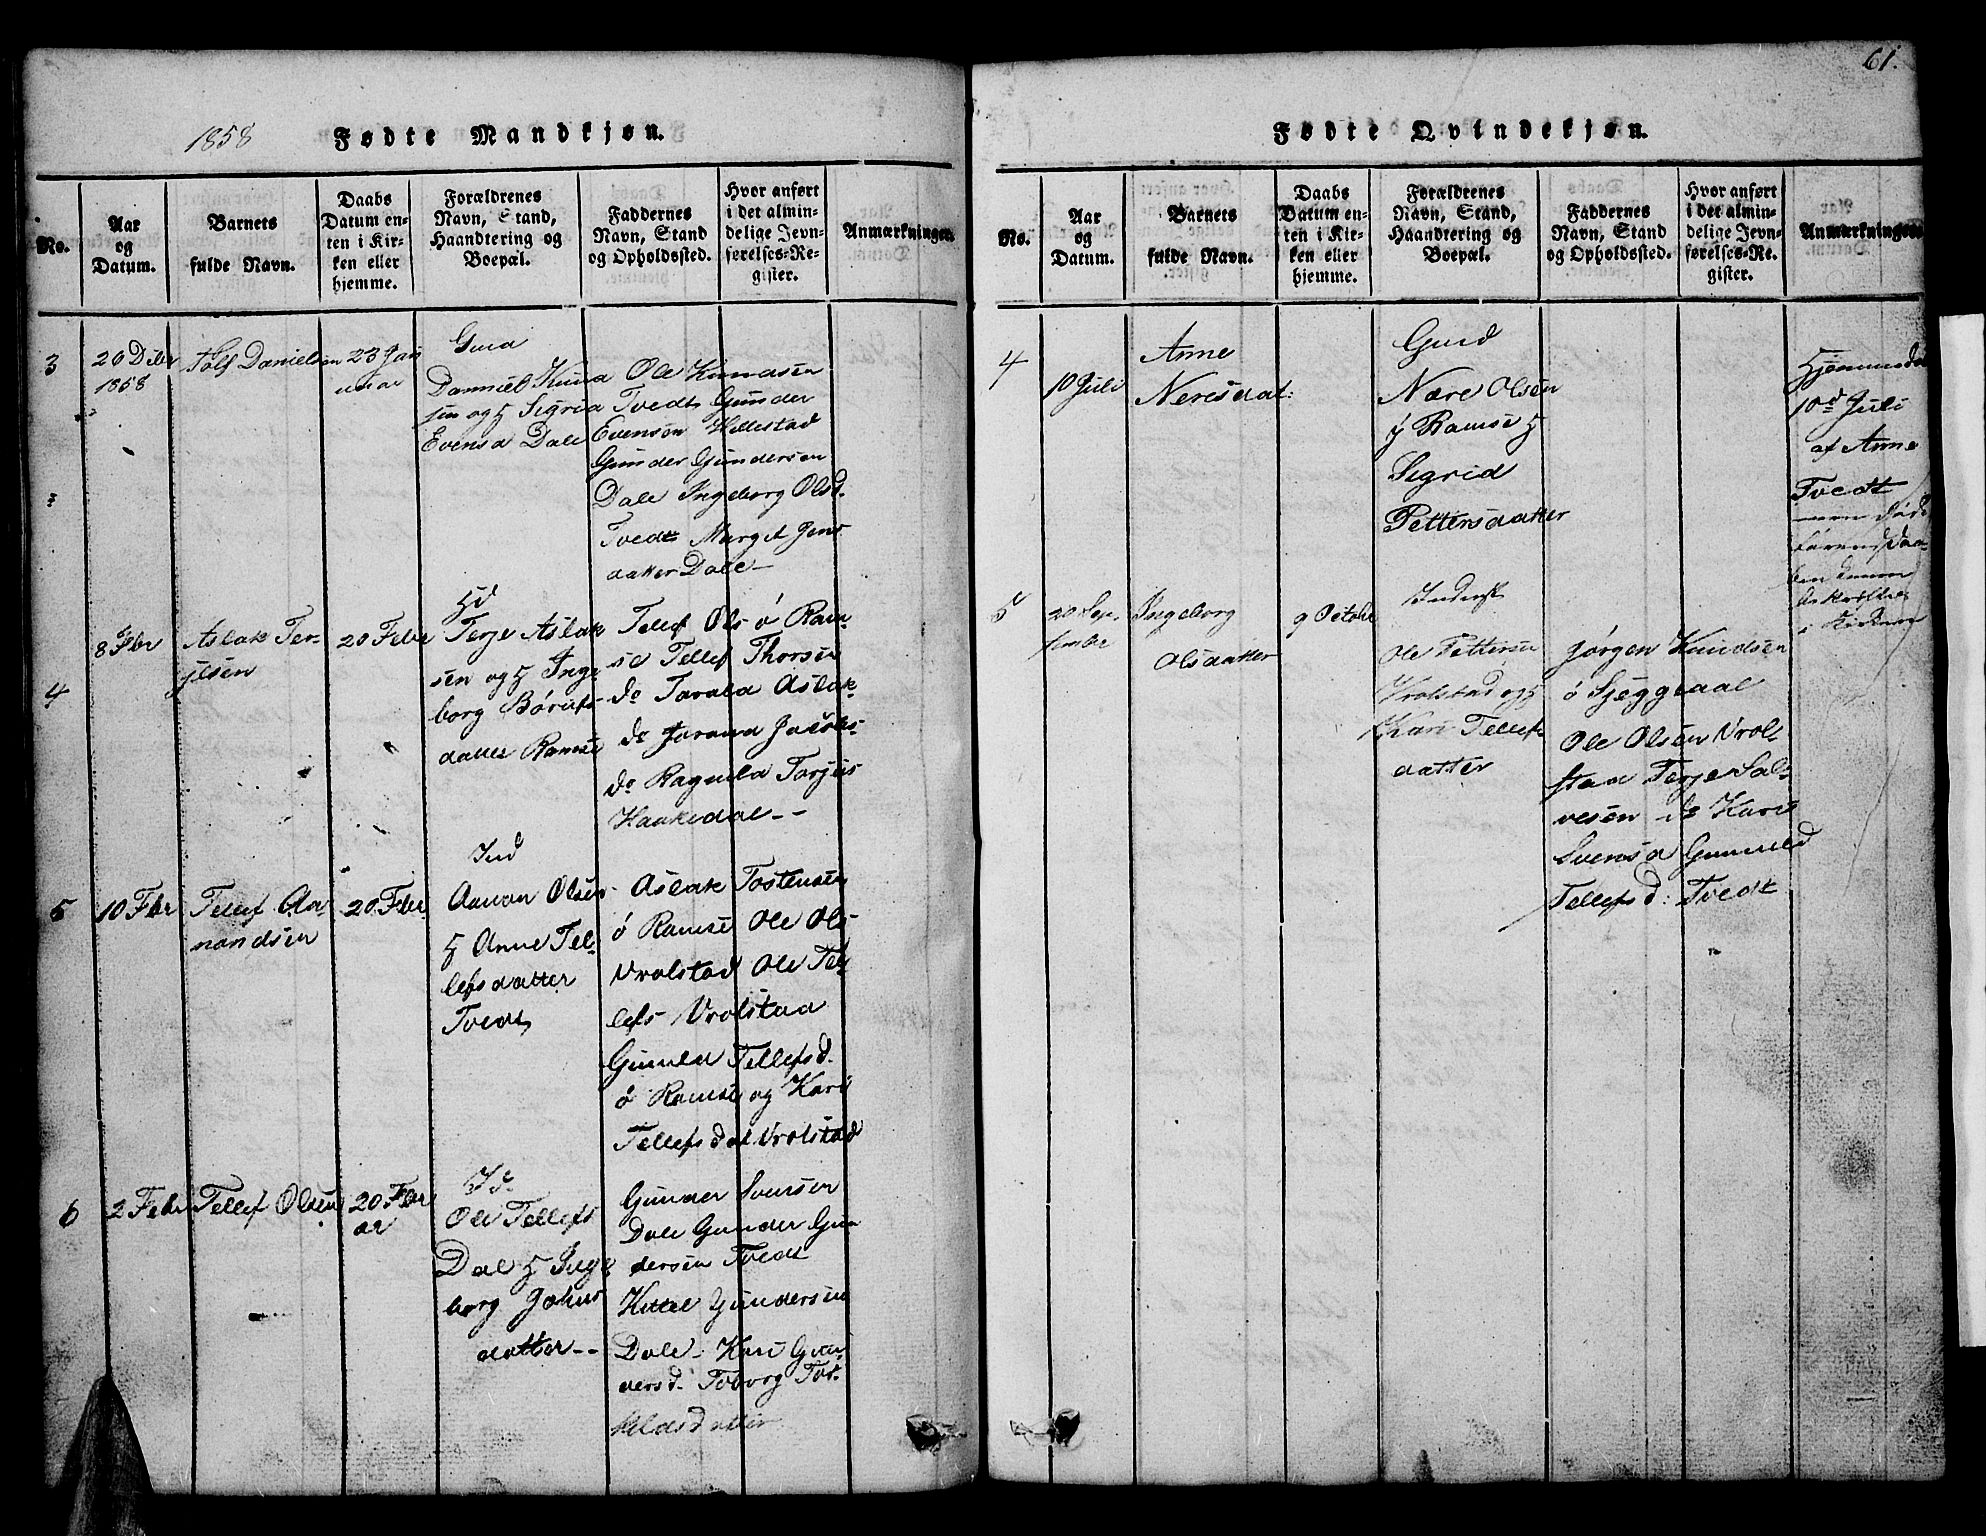 1858 Fødte Mandkjøn.
No.
Aar
og
Datum.
Barnets
fulde Navn.
Daabs
Datum en-
ten i Kir-
ken eller
hjemme.
Forældrenes
Navn, Stand,
Haandtering og
Boepæl.
Faddernes
Navn, Stand
og Opholdssted.
Hvor anført
i det almin-
delige Jevn-
førelses-Re-
gister.
Anmærkninger.
3
26 Dcbr
1858
Tolf Danielsen
23 Jan
uar
Gmd
Danniel Knud
sen og H Sigrid
Evensd Dale
Ole Knudsen
Tvedt Gunder
Evensen Hillestad
Gunder Gundersen
Dale Ingeborg Olsd.
Tvedt Margit Jens
datter Dale
4
8 Fbr
Aslak Ter-
jesen
20 Febr
Terje Aslak
sen og H Inge
borg Børufs-
datter Ramse
Tellef Ols ø Ram-
se Tellef Thorsen
do Tarald Aslak-
do Jorand Jacobs-
do Ragnild Torjus
Haakedal
5
10 Fbr
Tellef Aa
nondsen
20 Febr
Ind
Aanon Olsen
H Anne Tel-
lefsdatter
Tvedt
Aslak Tostensen
ø Ramse Ole Ols-
Vrolstad Ole Tel-
lefs Vrolstad
Gunild Tellefsd.
ø Ramse og Kari
Tellefsdat Vrolstad
6
2 Febr
Tellef Olsen
20 Febr
ar
Id.
Ole Tellefs
Dal H Inge
borg Johns
datter
Gunder Svensen
Dale Gunder Gun
dersen Tvedt
Kittel Gundersen
Dale Kari Gun-
dersd. Toborg Tor-
kildsdatter
61.
Fødte Qvindekjøn.
No.
Aar
og
Datum.
Barnets
fulde Navn.
Daabs
Datum en-
ten i Kir-
ken eller
hjemme.
Forældrenes
Navn, Stand,
Haandtering og
Boepæl.
Faddernes
Navn, Stand
og Opholdssted.
Hvor anført
i det almin-
delige Jevn-
førelses-Re-
gister.
Anmærkninger.
4
10 Juli
Anne
Neresdat:
Gmd
Nære Olsen
y Ramse H
Sigrid
Pettersdatter
Hjemmedøbt
10d Juli
af Anne
Tvedt
5
20 Sep-
tember
Ingeborg
Olsdatter
9 Octobr
Inderst
Ole Pettersen
Vrolstad og H
Kari Tellefs-
datter
Jørgen Knudsen
ø Sjeggedal
Ole Olsen Vrol-
stad Terje Sal-
vesen do Kari
Svensd Gunnild
Tellefsd: Tvedt